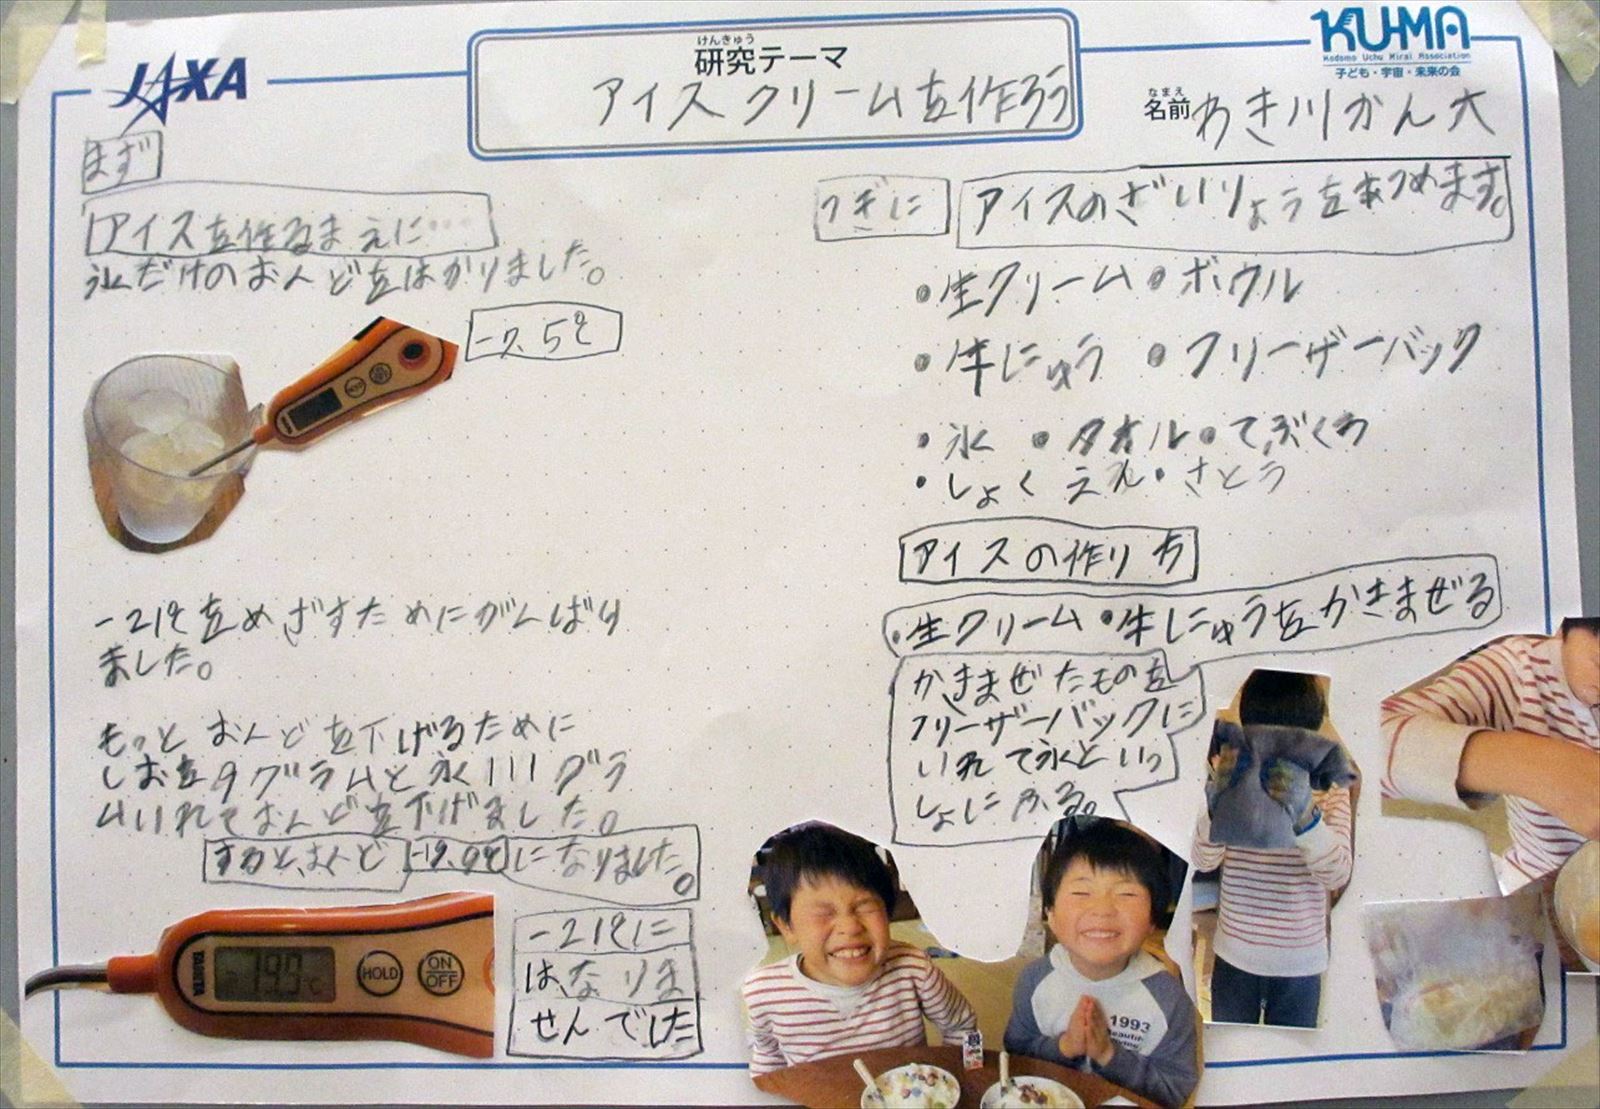 JAXA
けんきゅう
研究テーマ
アイスクリームを作ろう
KU-MA
Kodomo Uchu Mirai Association
子ども・宇宙・未来の会
なまえ
名前 わき川かん大
まず
アイスを作るまえに…
氷だけのおんどをはかりました。
-7.5℃
-21℃をめざすためにがんばり
ました。
もっとおんどを下げるために
しおを9グラムと氷111グラ
ムいれておんどを下げました。
するとおんど -19.9℃になりました。
19.9℃
HOLD
ON
OFF
TANITA
-21℃に
は、なりま
せんでした
つぎに
アイスのざいりょうをあつめます。
・生クリーム・ボウル
・牛にゅう ・フリーザーバック
・氷 ・タオル・てぶくろ
・しょくえん・さとう
アイスの作り方
・生クリーム・牛にゅうをかきまぜる
かきまぜたものを
フリーザーバックに
いれて氷といっ
しょにふる。
1993